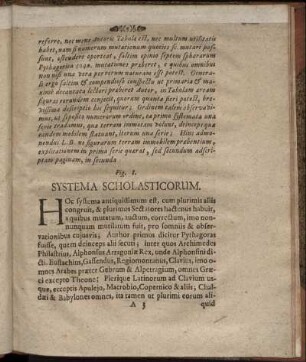 referre, nec mens Autoris Tabula est, nec multum utilitatis
habet, nam si numerum mutationum quoties si mutari possint,
ostendere oporteat, saltem
Pythagorica 5040. mutationes praeberet, e quibus omnibus
non nisi una vera pro rerum naturam esse potest. Generalia
ergo saltem & compendiosa
admodum decantata dictari praeberet autor, in Tabulam arcam
figuras secundum conjecit, quarum quanta fieri potest, brevissima
descriptio hic sequitur; Ordinem talem observabimus,
ut seposito numerorum ordine, ea primo sistemata una
serie tradamus, quae terram immotam volunt, deinceps quae
eandem mobilem statuunt, iterum una serie; Hinc admonendus
L. B. ne figurarum terram immobilem probantium,
explicationem in prima serie quaerat, sed secundum adscriptam
paginam, in secunda
Fig. 1.
SYSTEMA SCHOLASTICORUM.
HOc systema antiquissimum est, cum plurimis aliis
congruit, & plurimos Sectatores hactenus habuit,
a quibus mutatum, auctum, correctum, imo non
nunquam mutilatum fuit, pro somniis & observationibus
cujusvis; Author primus dicitur Pythagoras
fuisse, quem deinceps alii secuti; inter quos Archimedes
Philastrius, Alphonsus Arragoniae Rex, unde Alphonsini dicti.
Eustachius, Gassendus, Regiomontanus, Clavius, imo omnes
Arabes praeter Geirum & Alpetragium, omnes Graeci
excepto Theone? Plerique Latinorum ad Clavium usque,
exceptis Apulejo, Macrobio, Copernico & aliis; Chaldaei
& Babylones omnes, ita tamen ut plurimi eorum aliquid
A 3
quid